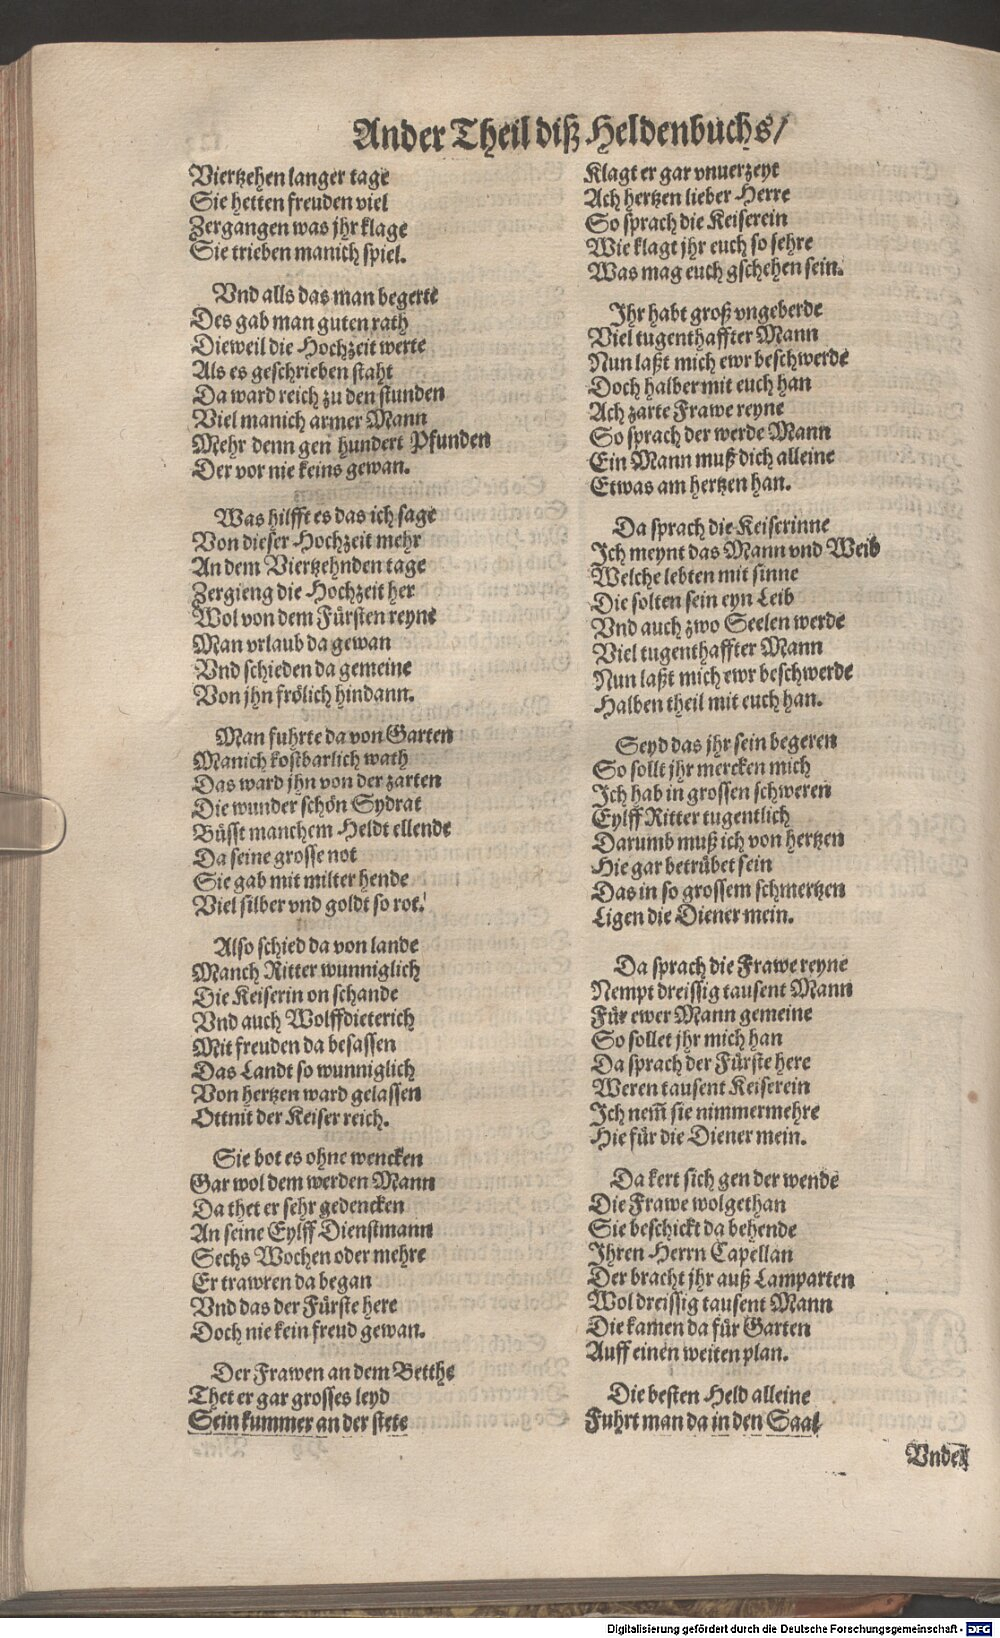 Ander Theil diß Heldenbuchs/
Viertzehen langer tage
Sie hetten freuden viel
Zergangen was jhr klage
Sie trieben manich spiel.
Vnd alls das man begerte
Des gab man guten rath
Dieweil die Hochzeit werte
Als es geschrieben staht
Da ward reich zu den stunden
Viel manich armer Mann
Mehr denn gen hundert Pfunden
Der vor nie keins gewan.
Was hilfft es das ich sage
Von dieser Hochzeit mehr
An dem Viertzehnden tage
Zergieng die Hochzeit her
Wol von dem Fürsten reyne
Man vrlaub da gewan
Vnd schieden da gemeine
Von jhn frölich hindann.
Man fuhrte da von Garten
Manich kostbarlich wath
Das ward jhn von der zarten
Die wunder schön Sydrat
Büsst manchem Heldt ellende
Da seine grosse not
Sie gab mit milter hende
Viel silber vnd goldt so rot.
Also schied da von lande
Manch Ritter wunniglich
Die Keiserin on schande
Vnd auch Wolffdieterich
Mit freuden da besassen
Das Landt so wunniglich
Von hertzen ward gelassen
Ottnit der Keiser reich.
Sie bot es ohne wencken
Gar wol dem werden Mann
Da thet er sehr gedencken
An seine Eylff Dienstmann
Sechs Wochen oder mehre
Er trawren da began
Vnd das der Fürste here
Doch nie kein freud gewan.
Der Frawen an dem Betthe
Thet er gar grosses leyd
Sein kummer an der stete
Klagt er gar vnuerzeyt
Ach hertzen lieber Herre
So sprach die Keiserein
Wie klagt jhr euch so sehre
Was mag euch gschehen sein.
Jhr habt groß vngeberde
Viel tugenthaffter Mann
Nun laßt mich ewr beschwerde
Doch halber mit euch han
Ach zarte Frawe reyne
So sprach der werde Mann
Ein Mann muß dich alleine
Etwas am hertzen han.
Da sprach die Keiserinne
Ich meynt das Mann vnd Weib
Welche lebten mit sinne
Die solten sein eyn Leib
Vnd auch zwo Seelen werde
Viel tugenthaffter Mann
Nun laßt mich ewr beschwerde
Halben theil mit euch han.
Seyd das jhr sein begeren
So sollt jhr mercken mich
Ich hab in grossen schweren
Eylff Ritter tugentlich
Darumb muß ich von hertzen
Hie gar betrübet sein
Das in so grossem schmertzen
Ligen die Diener mein.
Da sprach die Frawe reyne
Nempt dreissig tausent Mann
Für ewer Mann gemeine
So sollet jhr mich han
Da sprach der Fürste here
Weren tausent Keiserein
Ich nem̃ sie nimmermehre
Hie für die Diener mein.
Da kert sich gen der wende
Die Frawe wolgethan
Sie beschickt da behende
Ihren Herrn Capellan
Der bracht jhr auß Lamparten
Wol dreissig tausent Mann
Die kamen da für Garten
Auff einen weiten plan.
Die besten Held alleine
Fuhrt man da in den Saal
Vnder
Digitalisierung gefördert durch die Deutsche Forschungsgemeinschaft - DFG